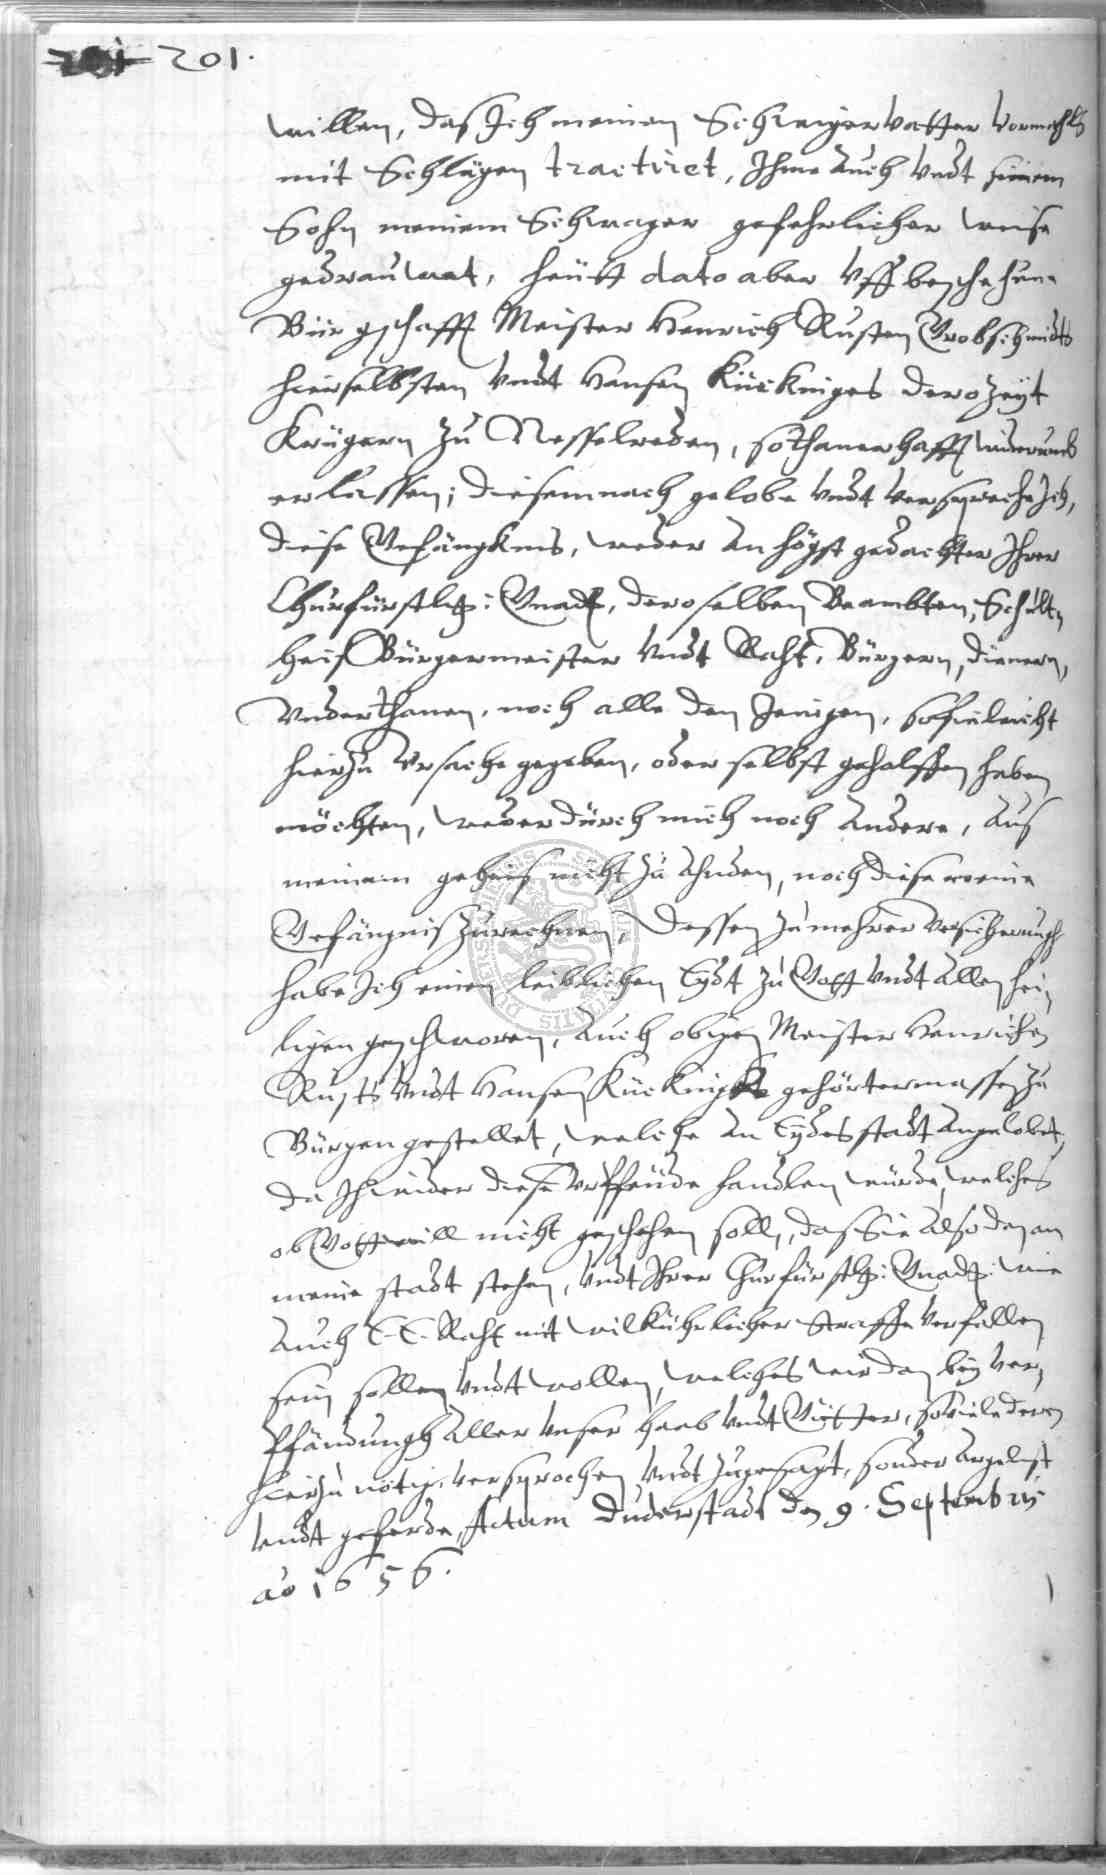 201.
willen, das Ich meinen Schwigervatter vormahls
mit Schlägen tractiret, Ihme auch vndt seinem
Sohn meinem Schwager gefehrlicher weise
gedrauwet, heütt dato aber vff beschehene
Bürgschafft Meister Henrich Rusten Grobschmidts
hierselbsten vndt Hansen Kückniges dero Zeyt
Krügern zu Nesselreden, sothaner hafft widerumb
erlassen; diesemnach gelobe vndt verspreche Ich,
diese Gefängknis, weder an högst gedachter Ihrer
Churfürstlg: Gnadt, deroselben Beambten, Schult,
heis Bürgermeister vndt Raht, Bürgern, dienern,
vnderthanen, noch alle den Jenigen, so vieleicht
hierzu vrsache gegeben, oder selbst geholffen haben
möchten, weder durch mich noch andere, aus
meinem geheis nicht zu ahnden, noch diese meine
Gefängnis zurechnen, dessen zu mehrer versicherungh
habe Ich einen leiblichen Eydt zu Gott vndt allen hei,
ligen geschworen, auch obigen Meister Henrichen
Rusts vndt Hansen Kücknigk gehörtermassen zu
Bürgen gestellet, welche an Eydes stadt angelobet,
da Ich wider diese vrffeüde handlen würde, welches
ob Gott will nicht geschehen soll, das Sie also dan an
meine stadt stehen, vndt Ihrer Churfürstlg: Gnadt: wie
auch E. E. Raht mit wilkührlicher Straffe verfallen
sein sollen vndt wollen, welches wir dan bey ver,
pfändungh aller vnser Haab vndt Gütter, so viele deren
hierzu nötig, versprochen vndt zugesagt, sonder argelist
vndt geferde, Actum Duderstadt den 9. Septembris
ao 1656.